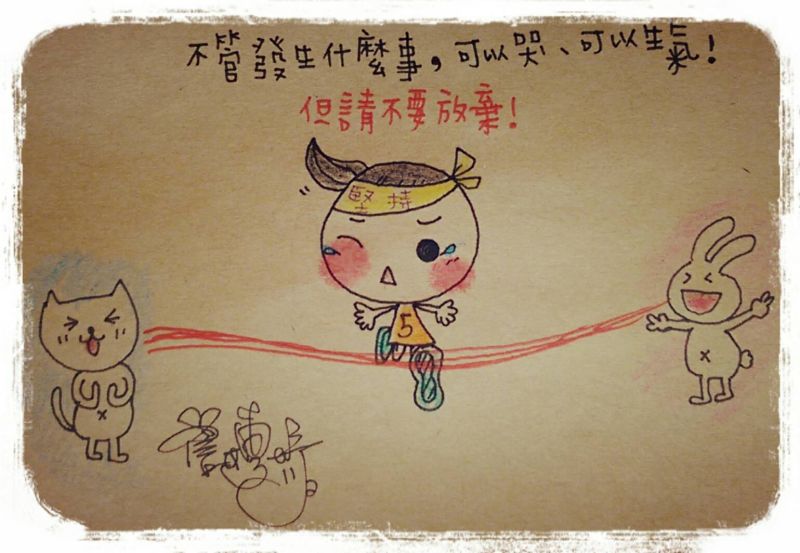 不管發生什麼事，可以哭、可以生氣！
但請不要放棄！
堅持
5